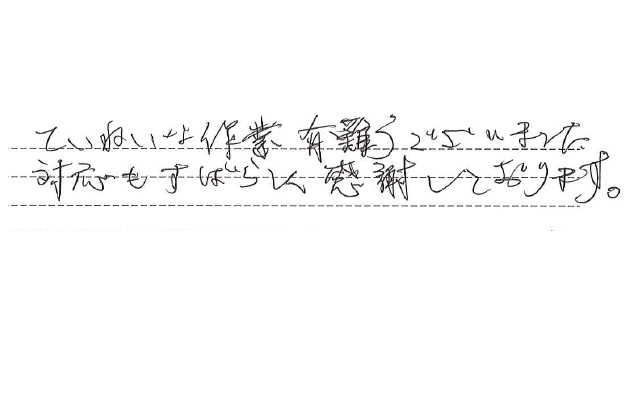 ていねいな作業有難うございました
対応もすばらしく感謝しております。